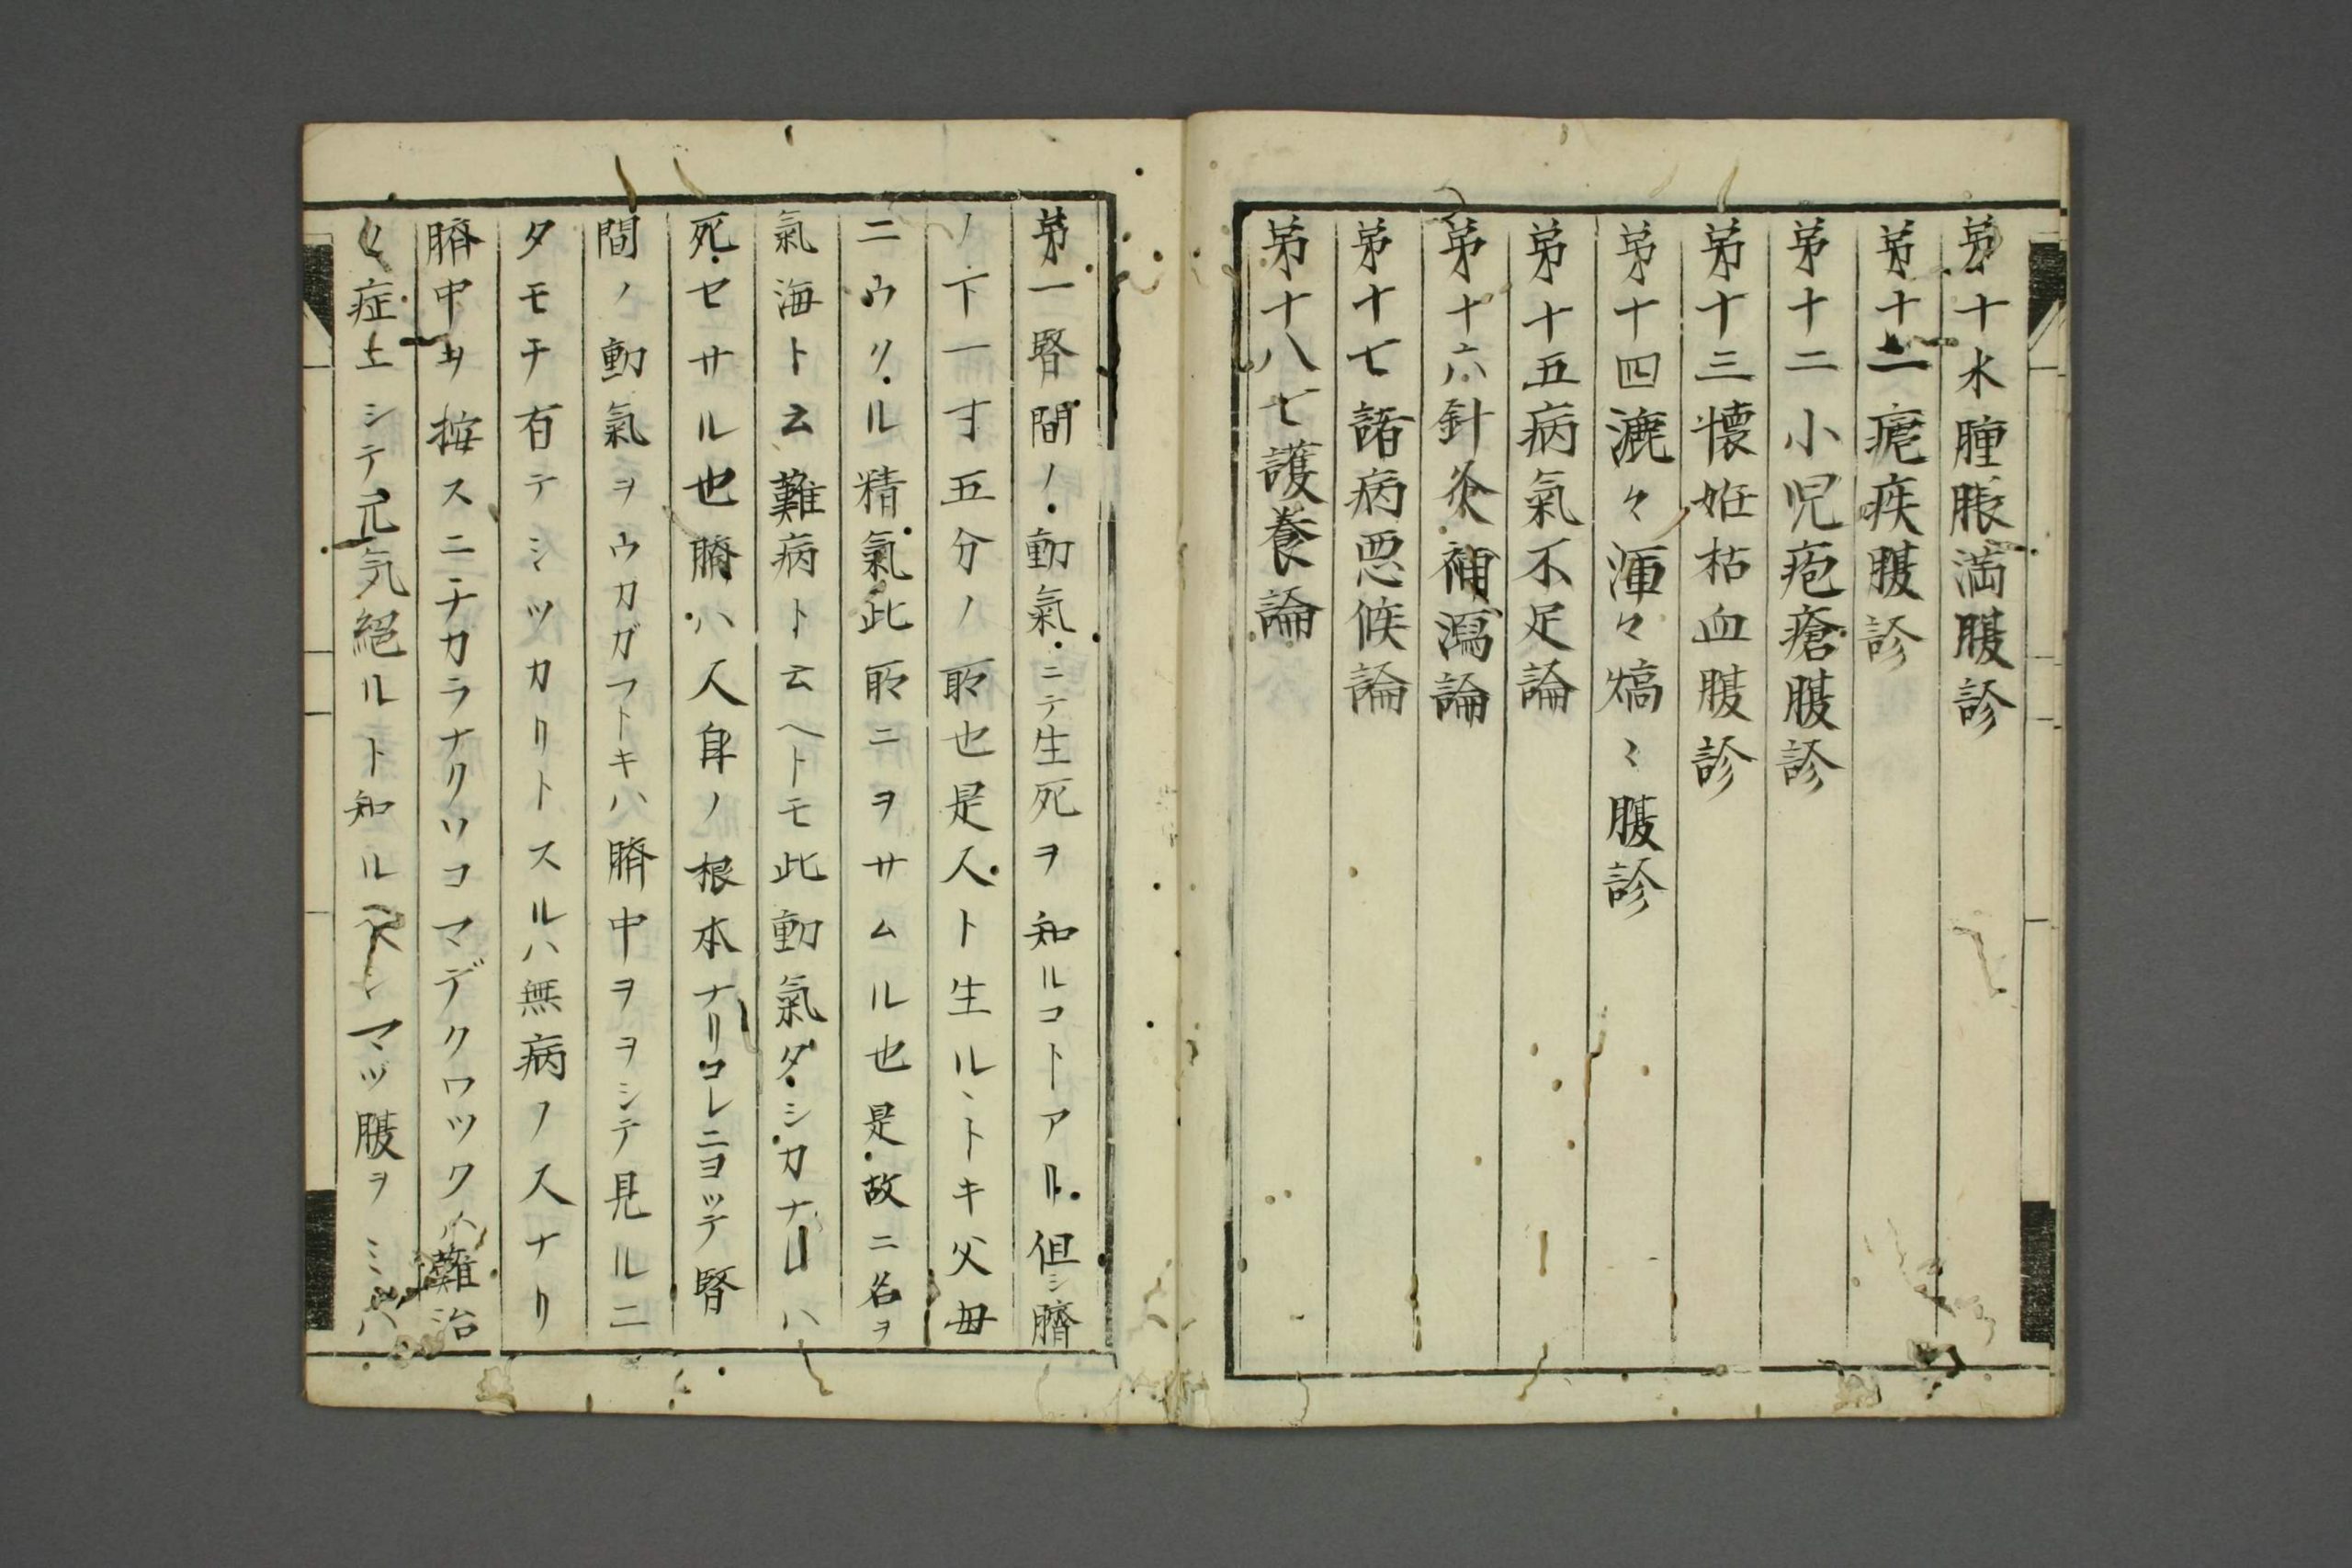 第十水腫脹満腹診
第十一瘧疾腹診
第十二小児疱瘡腹診
第十三懐妊枯血腹診
第十四漉々渾々熇〻腹診
第十五病氣不足論
第十六針灸補瀉論
第十七諸病悪候論
第十八七護養論
第一腎間ノ動氣ニテ生死ヲ知ルコトアリ但シ臍
ノ下一寸五分ノ所也是人ト生ルヽトキ父母
ニウクル精氣此所ニヲサムル也是故ニ名ヲ
氣海ト云難病ト云ヘトモ此動氣タシカナルハ
死セサル也臍ハ人身ノ根本ナリコレニヨッテ腎
間ノ動氣ヲウカガフトキハ臍中ヲヲシテ見ル二
タモチ有テシツカリトスルハ無病ノ人ナリ
臍中ヲ按スニチカラナクソコマデクワツクハ難治
ノ症ニシテ元気絕ルト知ルヘシマヅ腹ヲ